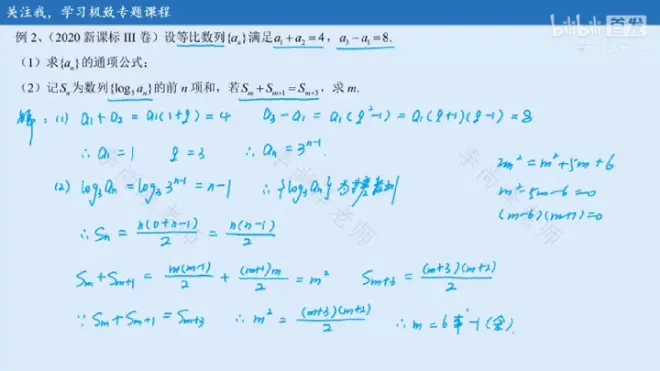 关注我，学习极致专题课程
bilibili 首发
例 2、（2020 新课标 III 卷）设等比数列{aₙ}满足a₁+a₂=4，a₃-a₁=8.
（1）求{aₙ}的通项公式；
（2）记Sₙ为数列{log₃aₙ}的前 n 项和，若Sₘ+Sₘ₊₁=Sₘ₊₃，求 m.
解：(1) a₁+a₂=a₁(1+q)=4 a₃-a₁=a₁(q²-1)=a₁(q+1)(q-1)=8
∴a₁=1 q=3 ∴aₙ=3ⁿ⁻¹.
2m²=m²+5m+6
(2) log₃aₙ=log₃3ⁿ⁻¹=n-1 ∴{log₃aₙ}为等差数列
m²-5m-6=0
(m-6)(m+1)=0
∴Sₙ=n(0+n-1)/2=n(n-1)/2
Sₘ+Sₘ₊₁=m(m-1)/2+(m+1)m/2=m² Sₘ₊₃=(m+3)(m+2)/2
∵Sₘ+Sₘ₊₁=Sₘ₊₃ ∴m²=(m+3)(m+2)/2 ∴m=6或-1(舍).
李尚老师